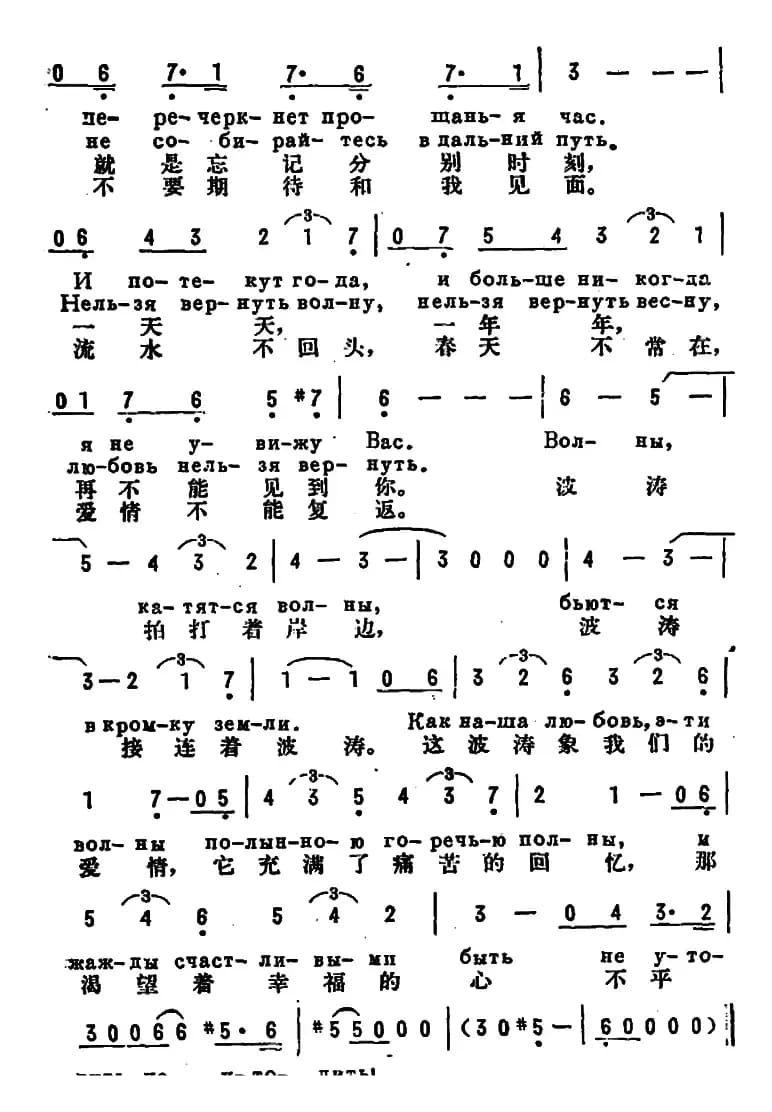 0 6 7· 1 7· 6 7· 1 | 3 — — — |
пе- ре-черк-нет про- щань-я час.
не со-би-рай-тесь в даль-ний путь.
就是忘记分别时刻,
不要期待和我见面。
3 3
0 6 4 3 2 1 7 | 0 7 5 4 3 2 1 |
И по-те-кут го-да, и боль-ше ни-ког-да
Нель-зя вер-нуть вол-ну, нель-зя вер-нуть вес-ну,
一天天, 一年年,
流水不回头, 春天不常在,
0 1 7 6 5 #7 | 6 — — — | 6 — 5 — |
я не у- ви-жу Вас. Вол- ны,
лю-бовь нель-зя вер-нуть.
再不能见到你。 波涛
爱情不能复返。
3
5 — 4 3 2 | 4 — 3 — | 3 0 0 0 | 4 — 3 — |
ка-тят-ся вол-ны, бьют-ся
拍打着岸边, 波涛
3 3 3
3 — 2 1 7 | 1 — 1 0 6 | 3 2 6 3 2 6 |
в кром-ку зем-ли. Как на-ша лю-бовь, э-ти
接连着波涛。这波涛象我们的
3 3
1 7 — 0 5 | 4 3 5 4 3 7 | 2 1 — 0 6 |
вол-ны по-лын-но-ю го-речь-ю пол-ны, и
爱情, 它充满了痛苦的回忆, 那
3 3
5 4 6 5 4 2 | 3 — 0 4 3· 2 |
жаж-ды счаст-ли-вы-ми быть не у-то-
渴望着幸福的心不平
3 0 0 6 6 #5· 6 | #5 5 0 0 0 | (3 0 #5 — | 6 0 0 0 0) ‖